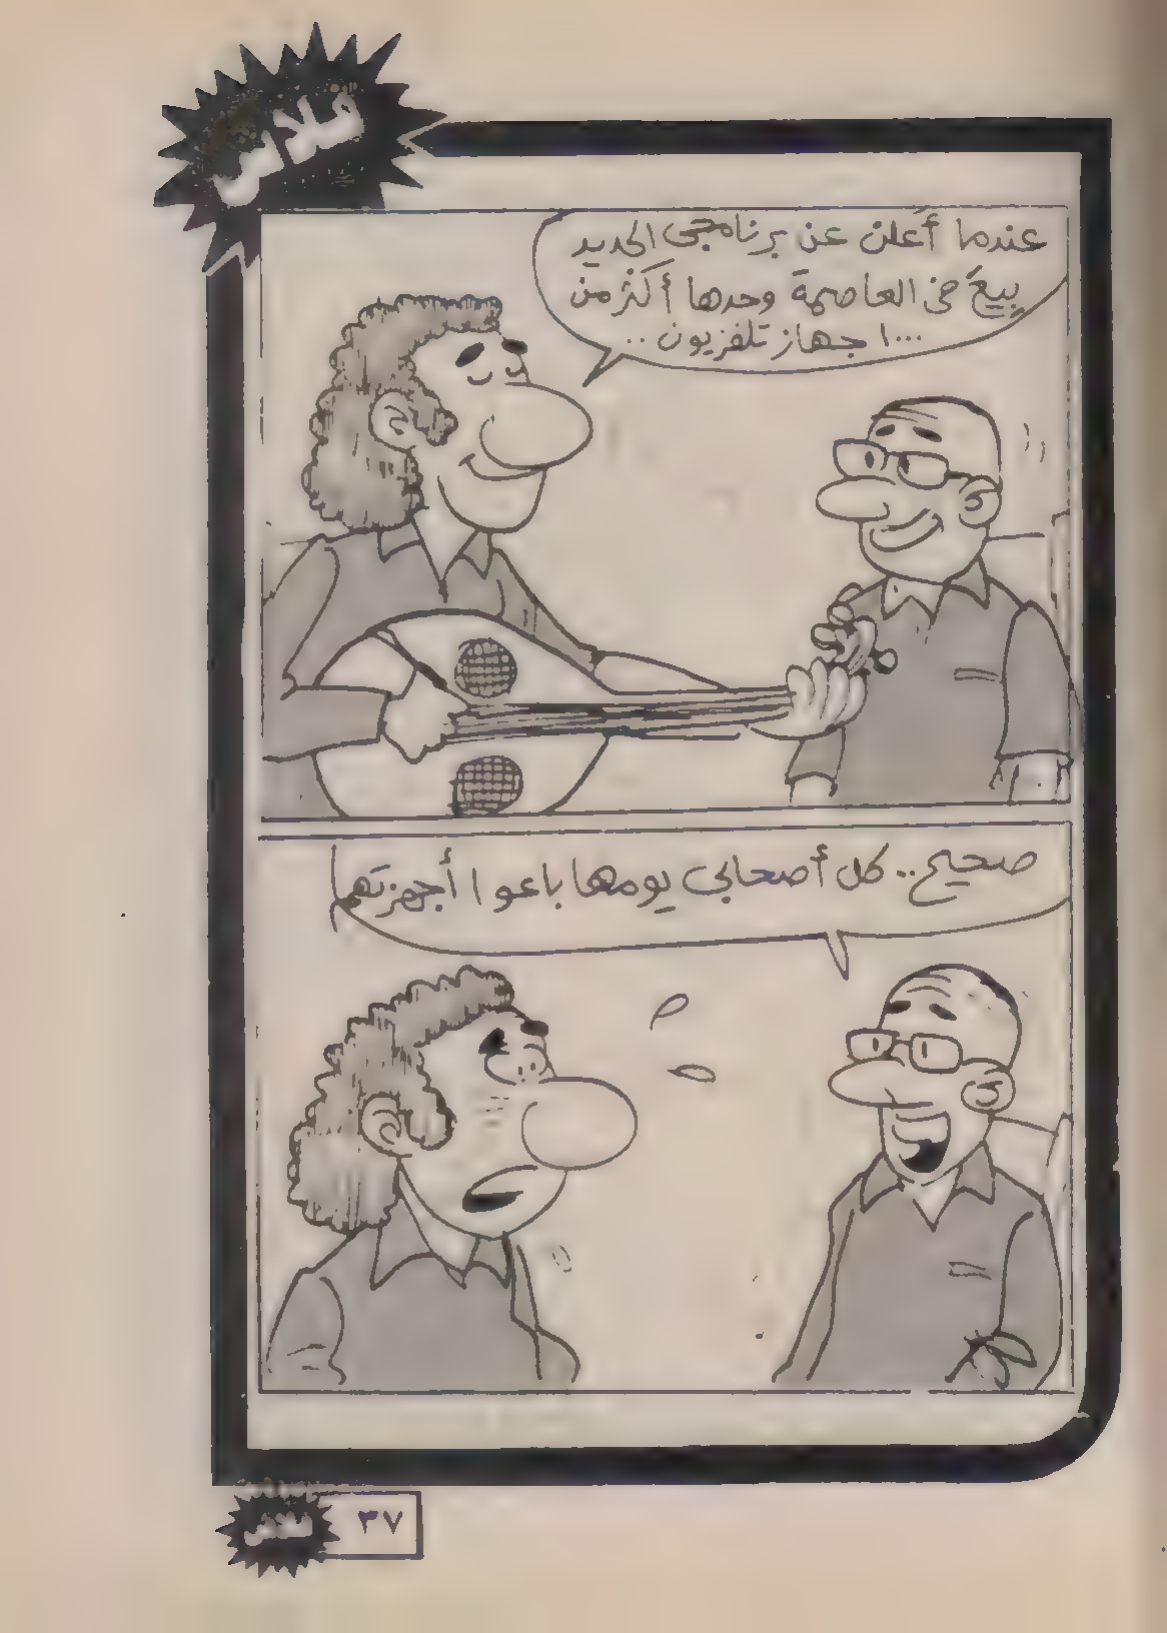 فلاش
عندما أُعلن عن برنامجى الجديد
بِيعَ فى العاصمة وحدها أكثر من
١٠٠٠ جهاز تلفزيون ..
صحيح.. كل أصحابى يومها باعوا أجهزتهم
فلاش
٣٧